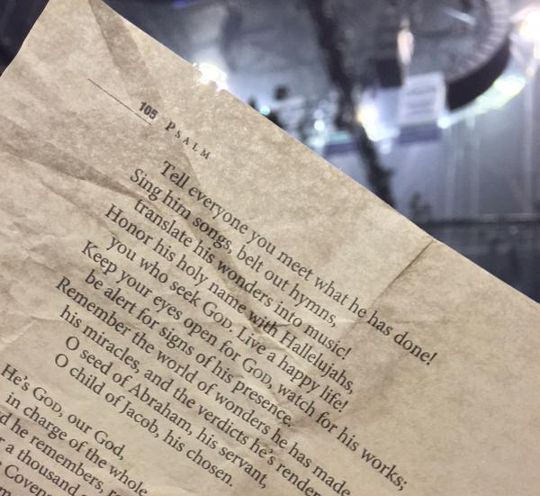 105 PSALM
Tell everyone you meet what he has done!
Sing him songs, belt out hymns,
translate his wonders into music!
Honor his holy name with Hallelujahs,
you who seek GOD. Live a happy life!
Keep your eyes open for GOD, watch for his works;
be alert for signs of his presence.
Remember the world of wonders he has made,
his miracles, and the verdicts he's
O seed of Abraham, his servant,
O child of Jacob, his chosen.
He's GOD, our God,
in charge of the whole
he remembers,
a thousand